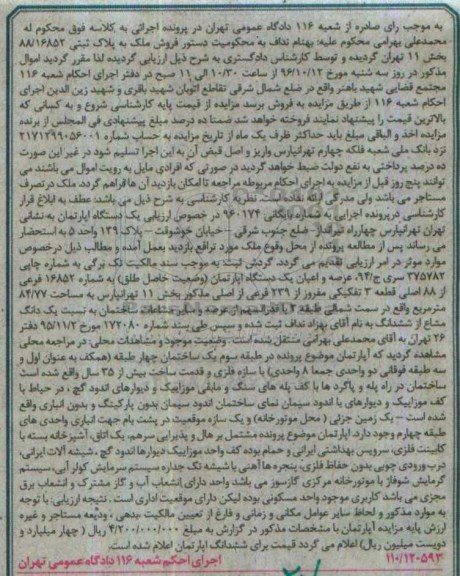 به موجب رای صادره از شعبه ۱۱۶ دادگاه عمومی تهران در پرونده اجرائی به کلاسه فوق محکوم له
محمدعلی بهرامی محکوم علیه: بهنام نداف به محکومیت دستور فروش ملک به پلاک ثبتی ۸۸/۱۶۸۵۲
بخش ۱۱ تهران گردیده و توسط کارشناس دادگستری به شرح ذیل ارزیابی گردیده لذا مقرر گردید اموال
مذکور در روز سه شنبه مورخ ۹۶/۱۰/۱۲ از ساعت ۱۰/۳۰ الی ۱۱ صبح در دفتر اجرای احکام شعبه ۱۱۶
مجتمع قضایی شهید باهنر واقع در ضلع شمال شرقی تقاطع اتوبان شهید باقری و شهید زین الدین اجرای
احکام شعبه ۱۱۶ از طریق مزایده به فروش برسد مزایده از قیمت پایه کارشناسی شروع و به کسانی که
بالاترین قیمت را پیشنهاد نمایند فروخته خواهد شد ضمنا ده درصد مبلغ پیشنهادی فی المجلس از برنده
مزایده اخذ و الباقی مبلغ باید حداکثر ظرف یک ماه از تاریخ مزایده به حساب شماره ۲۱۷۱۲۹۹۰۵۶۰۰۱
نزد بانک ملی شعبه فلکه چهارم تهرانپارس واریز و اصل فیش آن به این اجرا تسلیم شود در غیر این صورت
ده درصد پرداختی به نفع دولت ضبط خواهد گردید در صورتی که افرادی مایل به رویت اموال می باشند می
توانند پنج روز قبل از مزایده به اجرای احکام مربوطه مراجعه تا امکان بازدید آن ها فراهم گردد. ملک در تصرف
مستاجر می باشد ولی مدرکی ارائه نشده است. نظریه کارشناسی به شرح ذیل می باشد: عطف به ابلاغ قرار
کارشناسی در پرونده اجرایی به شماره بایگانی ۹۶۰۱۷۴ در خصوص ارزیابی یک دستگاه آپارتمان به نشانی
تهران تهرانپارس چهارراه تیرانداز- ضلع جنوب شرقی -خیابان خوشوقت - پلاک ۱۳۹ واحد ۵ به استحضار
می رساند پس از مطالعه پرونده از محل وقوع ملک مورد ترافع بازدید بعمل آمده و مطالب ذیل درخصوص
موارد موثر در امر ارزیابی تقدیم می گردد. گردش ثبت: به موجب سند مالکیت تک برگی به شماره چاپی
۳۷۵۷۸۲ سری ج/۹۴، عرصه و اعیان یک دستگاه آپارتمان (وضعیت خاص طلق) به شماره ۱۶۸۵۲ فرعی
از ۸۸ اصلی قطعه ۳ تفکیکی مفروز از ۲۳۹ فرعی از اصلی مذکور بخش ۱۱ تهرانپارس به مساحت ۸۴/۷۷
مترمربع واقع در سمت شمالی طبقه ۲ با قدرالسهم از عرصه و سایر مشاعات ساختمان به نسبت یک دانگ
مشاع از ششدانگ به نام آقای بهزاد نداف ثبت شده و سپس طی سند شماره ۱۷۲۰۸۰ مورخ ۹۵/۱۱/۲ دفتر
۲۶ تهران به آقای محمدعلی بهرامی منتقل شده است. وضعیت موجود و مشاهدات محلی: در مراجعه محلی
مشاهده گردید که آپارتمان موضوع پرونده در طبقه سوم یک ساختمان چهار طبقه (همکف به عنوان اول و
سه طبقه فوقانی دو واحدی جمعا ۸ واحدی) با سازه فلزی و قدمت ساخت بیش از ۳۵ سال واقع شده است
ساختمان در راه پله و پاگرد ها با کف پله های سنگ و مابقی موزاییک و دیوارهای اندود گچ ، در حیاط با
کف موزاییک و دیوارهای با اندود سیمان نمای ساختمان اندود سیمان بدون پارکینگ و بدون انباری واقع
شده است - یک زمین جزئی ( محل موتورخانه) و یک سازه موقعیت در پشت بام جهت انباری واحدی های
طبقه چهارم وجود دارد. آپارتمان موضوع پرونده مشتمل بر هال و پذیرایی سرهم، یک اتاق، آشپزخانه بسته با
کابینت فلزی، سرویس بهداشتی ایرانی و حمام بوده کف واحد موزاییک دیوارها اندود گچ ، شیشه آلات ایرانی،
درب ورودی چوبی بدون حفاظ فلزی، پنجره ها آهنی با شیشه تک جداره سیستم سرمایش کولر آبی، سیستم
گرمایش شوفاژ با موتورخانه مرکزی گازسوز می باشد واحد دارای انشعاب آب و گاز مشترک و انشعاب برق
مجزی می باشد کاربری موجود واحد مسکونی بوده لیکن دارای موقعیت اداری است . نتیجه ارزیابی: با توجه
به موارد مذکور و لحاظ سایر عوامل مکانی و زمانی و فارغ از تعیین مالکیت بدهی ، ودیعه مستاجر و غیره
ارزش پایه مزایده آپارتمان با مشخصات مذکور در گزارش به مبلغ ۴/۲۰۰/۰۰۰/۰۰۰ ریال ( چهار میلیارد و
دویست میلیون ریال) اعلام می گردد قیمت برای ششدانگ آپارتمان اعلام شده است.
۱۱۰/۱۲۰۵۹۳ اجرای احکم شعبه ۱۱۶ دادگاه عمومی تهران